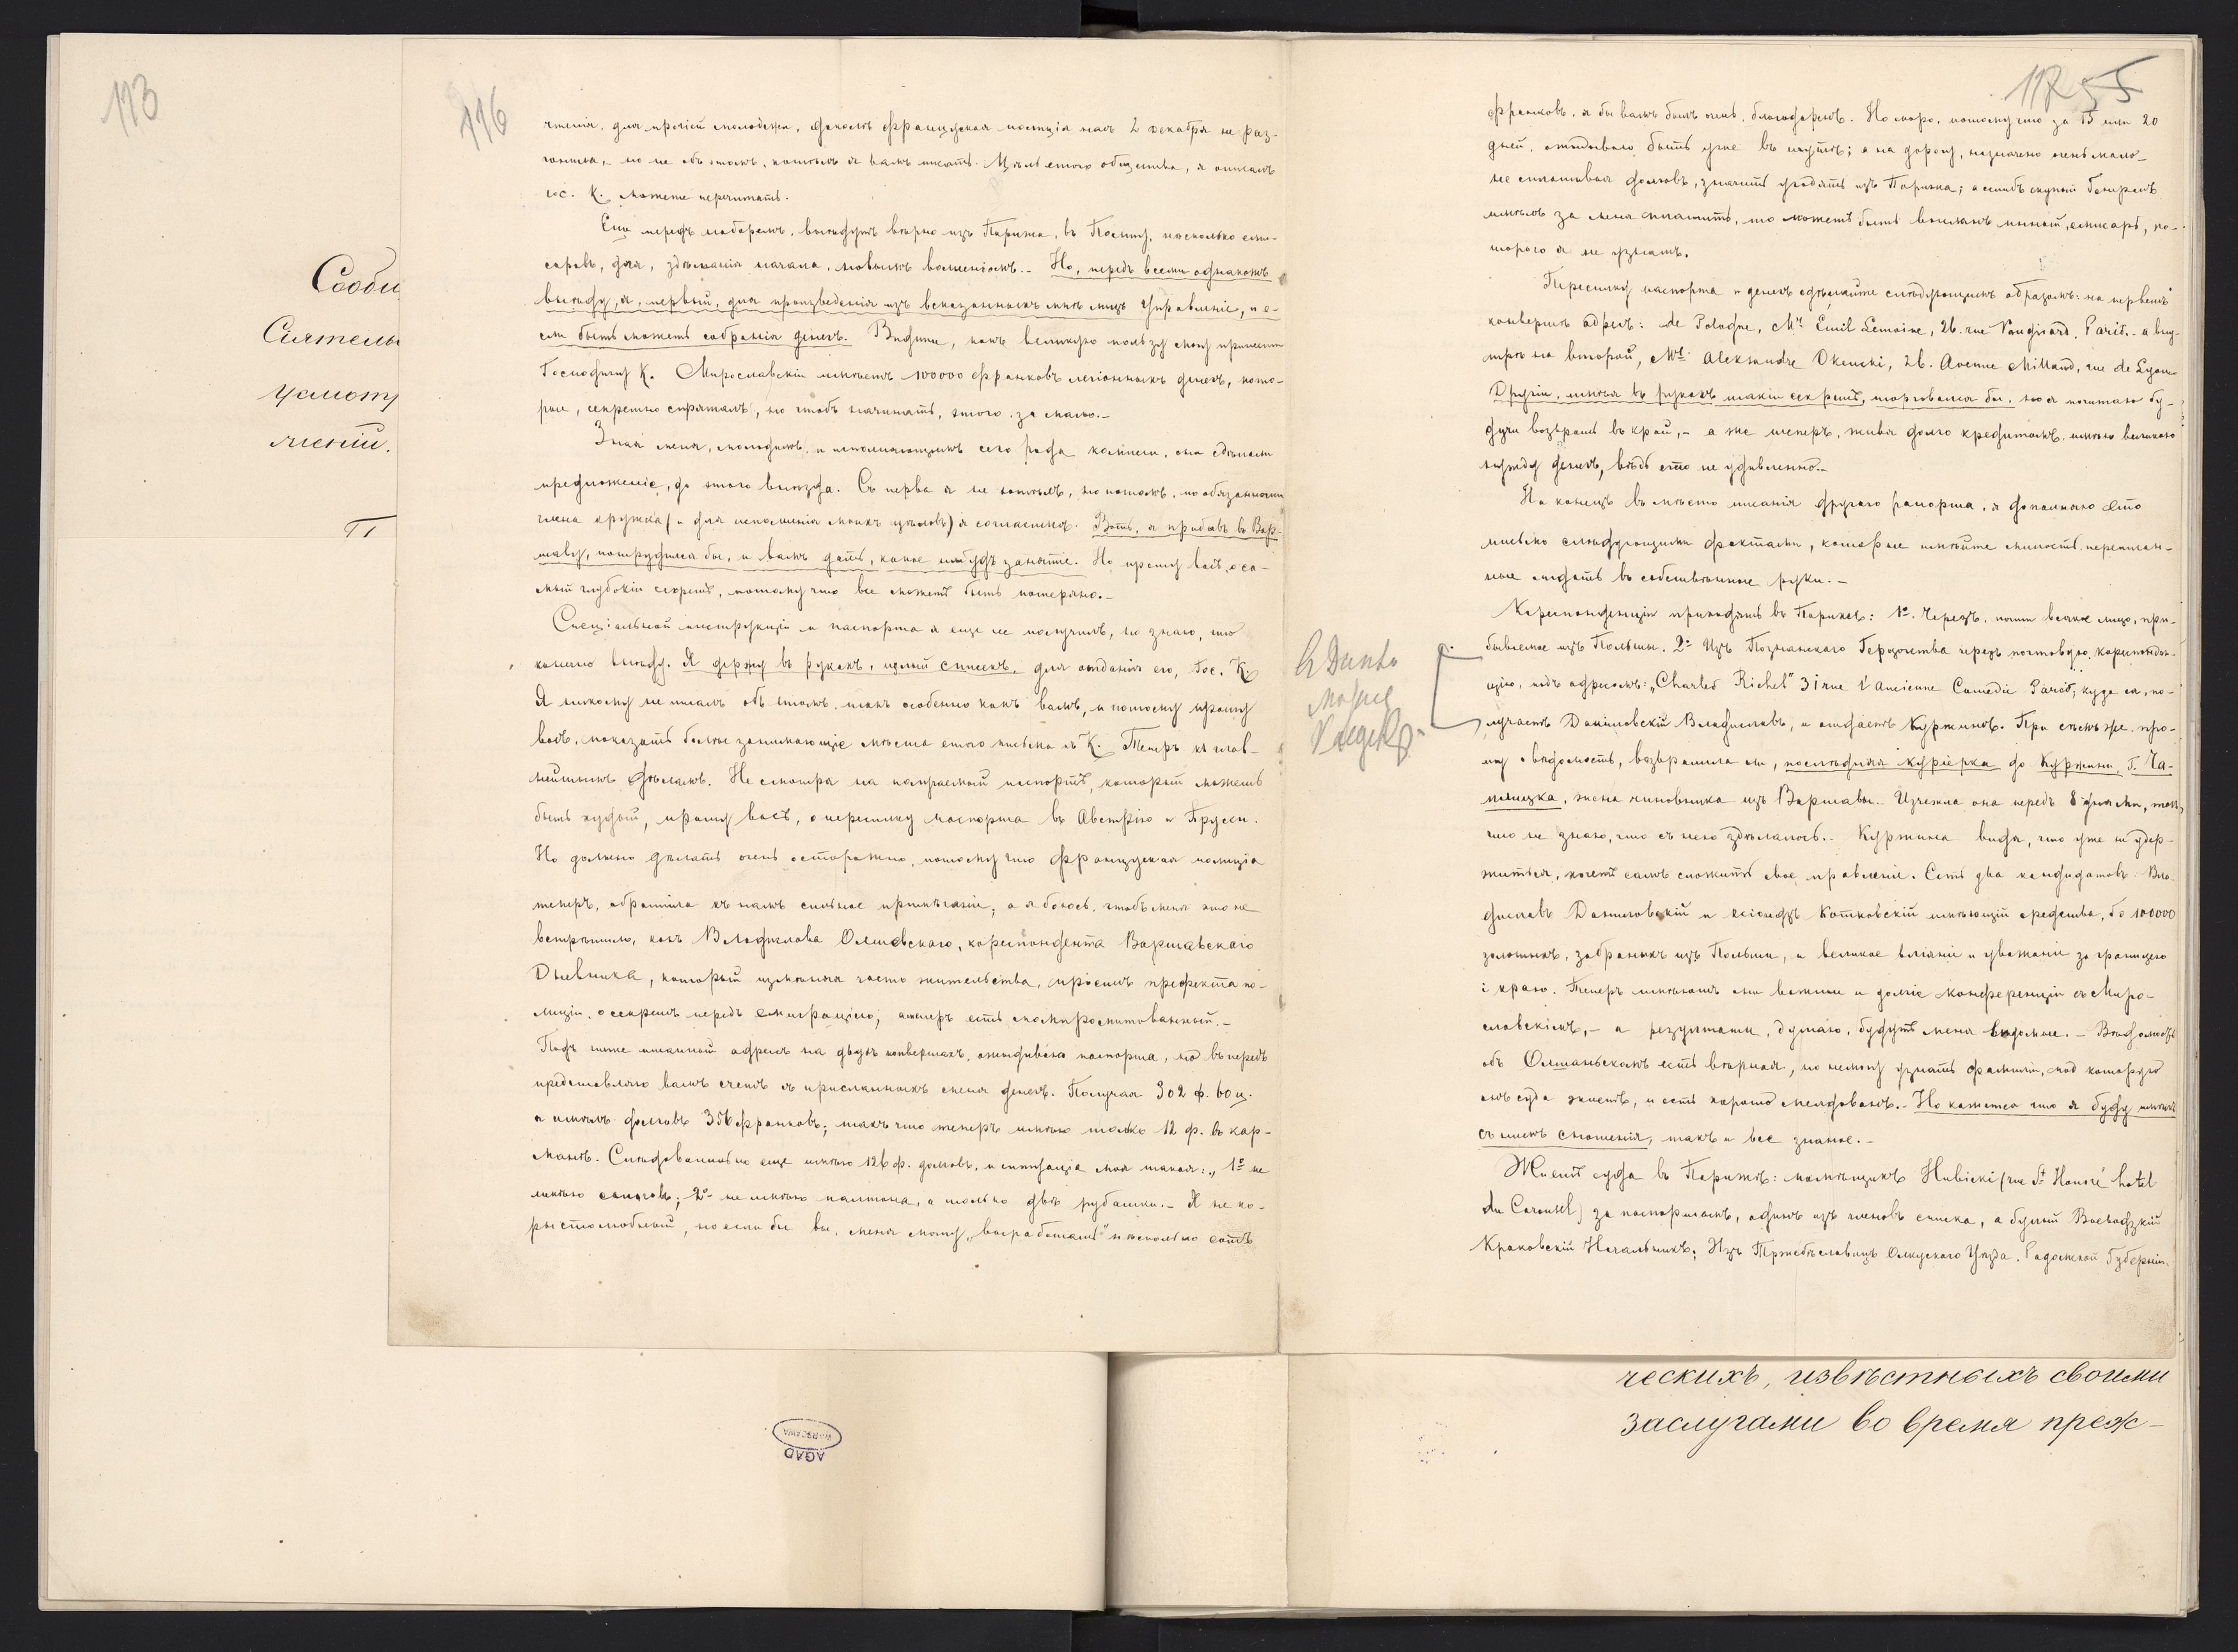 113
Сооби
Сіятель
усмотр
мѣній.
П
116
чтенія, для прочей молодежи, доколь французская полиція насъ 2 декабря не раз-
гонила, но не объ этомъ хотѣлъ я вамъ писать. Цѣль этого общества, я описалъ
гос. К. можете перечитать.
Еще передъ наборомъ, выѣдутъ вѣрно изъ Парижа, въ Польшу, насколько эми-
саровъ, для, здѣланія начала, новымъ волненіямъ.. Но, передъ всеми однакожъ
выѣду, я, первый, для произведенія изъ всказанныхъ мнѣ лицъ Управленіе, и е-
сли быть можетъ собранія денегъ. Видите, какъ великую пользу могу принести
Господину К. Мирославскій имѣетъ 100000 франковъ легіонныхъ денегъ, кото-
рые, секретно спряталъ, но чтобъ начинать, этого за мало.-
Зная меня, молодымъ, и исполняющимъ сего рода комисіи, они сдѣлали
предложеніе, до этого выѣзда. Съ перва я не хотѣлъ, но потомъ, по обязанности
члена кружка (и для исполненія моихъ цѣловъ) я согласился. Вотъ, я прибывъ въ Вар-
шаву, потрудился бы, и вамъ дать, какое нибудь занятіе. Но прошу васъ, о са-
мый глубокій секретъ, потому что все можетъ быть потеряно.-
Спеціальной инструкціи и паспорта я еще не получилъ, но знаю, что
конечно выѣду. Я держу въ рукахъ, целый списекъ, для отданія его, Гос. К.
Я никому не писалъ объ этомъ, такъ особенно какъ вамъ, и потому прошу
васъ, показать более занимающіе мѣста этого письма г. К. Теперь къ глав-
нейшимъ дѣламъ. Не смотря на получаемый паспортъ, который можетъ
быть худый, прошу васъ, о пересылку паспорта въ Австрію и Пруссіи.
Но должно дѣлать очень осторожно, потому что французская полиція
теперъ, обратила къ намъ сильное примѣчаніе; а я боюсь, чтобъ меня это не
встрѣтило, какъ Владислава Олшевскаго, кореспондента Варшавскаго
Дневника, который измѣняя часто жительства, просилъ префекта по-
лиціи, о секретъ передъ Эмиграціею; а теперъ естъ скомпромитованный.-
Подъ ниже писанный адресъ на двухъ конвертахъ, ожидиваю паспорта, но въ передъ
представляю вамъ счетъ съ присланныхъ меня денегъ. Получая 302 ф. 60 ц.
я имѣлъ долговъ 356 франковъ; такъ что теперъ имѣю только 12 ф. въ кар-
манѣ. Слѣдовательно еще имѣю 126 ф. долговъ, и ситуація моя такая: „1º не
имѣю сапоговъ; 2º не имѣю пальтона, а только двѣ рубашки.- Я не ко-
рыстолюбивый, но если бы вы, меня могли „выработать" нѣсколько сотъ
117 55
франковъ, я бы вамъ былъ очень благодаренъ. Но скоро, потому что за 15 или 20
дней, ожидываю быть уже въ пути; а на дорогу, назначено очень мало-
не сплативая долговъ, значитъ уѣдять изъ Парижа; а еслибъ скупый Генералъ
имѣлъ за меня сплатить, то можетъ быть высланъ инный, емисаръ, ко-
тораго я не узналъ.
Пересилку паспорта и денегъ сдѣлайте слѣдующимъ образомъ: на первемъ
конвертѣ адресъ: de Pologne, Mr Emil Lemoine, 26. rue Vaugirard, Paris.- и вну-
трь на второй, Mr Aleksandre Okenski, 26. Avenue Millaud, rue de Lyon-
Другіи, имѣя въ рукахъ такій секретъ, торговался бы, но я почитаю бу-
дучи возвратъ въ край,- а же теперъ, живя долго кредитомъ, имѣю великою
нужду денегъ, вѣдь ето не удивленно.-
На конецъ въ мѣсто писанія другаго рапорта, я дополняю ето
письмо слѣдующими фактами, которые имѣйте милость переписан-
ные отдать въ собственные руки.-
Кореспонденціи приходятъ въ Парижъ: 1º. Черезъ, почти всякое лицо, при-
бываемое изъ Польши. 2º Изъ Познанскаго Герцогства черезъ почтовую, кореспонден-
цію, подъ адресомъ: „Charles Richet" 31 rue l'Ancienne Comedie Paris, куда ея, по-
лучаетъ Даниловскій Владиславъ, и отдаётъ Куржинѣ. При семъ же, про-
шу о вѣдомость, возвратила ли, последняя курьерка до Куржины, Г. Ча-
плицка, жена чиновника изъ Варшавы.. Изчезла она передъ 8 днями, такъ
что не знаю, что съ нею здѣлалось.. Куржина видя, что уже не удер-
жится, хочетъ самъ сложить свое правленіе. Есть два кандидатовъ: Вла-
диславъ Даниловскій и ксіондзъ Котковскій имѣющій средства, до 100000
золотыхъ, забраныхъ изъ Польши, и великое вліяніе и уваженіе за границею
і краю. Теперъ имѣютъ они важные и долгіе конференціи съ Миро-
славскімъ,- а результаты, думаю, будутъ меня видомые.- Вѣдомость
объ Олшанскомъ естъ вѣрная, но немогу узнать фамиліи, под которую
онъ суда живетъ, и естъ хорошо мелдованъ.- Но кажется что я буду имѣть
съ нимъ сношенія, такъ и все знаное.-
Живетъ суда въ Парижѣ: помѣщикъ Hubicki (rue St Honoré hotel
du Carousel) за паспортомъ, одинъ изъ членовъ списка, а булый Воеводзкій
Краковскій Начальникъ; Изъ Тржебѣславицъ Олкускаго Уѣзда. Радомской Губерніи.
AGAD
WARSZAWA
ческихъ, извѣстныхъ своими
заслугами во время преж-